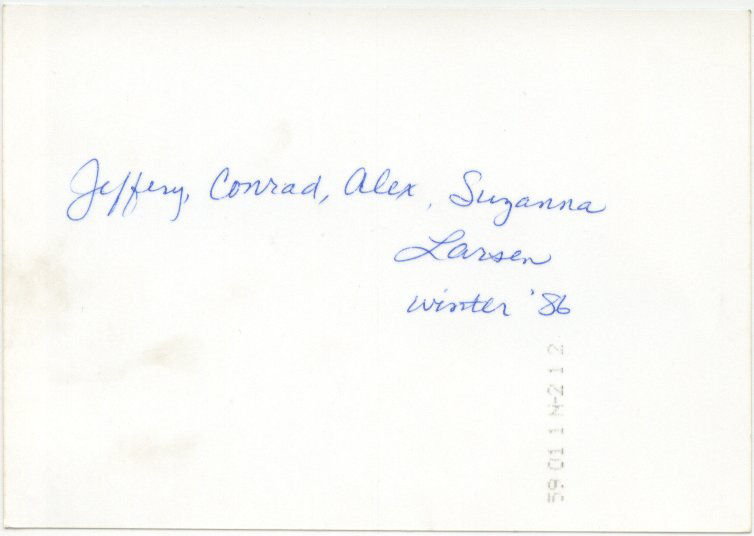 Jeffery, Conrad, Alex, Suzanna
Larsen
Winter '86
59 01 1 N-2 1 2